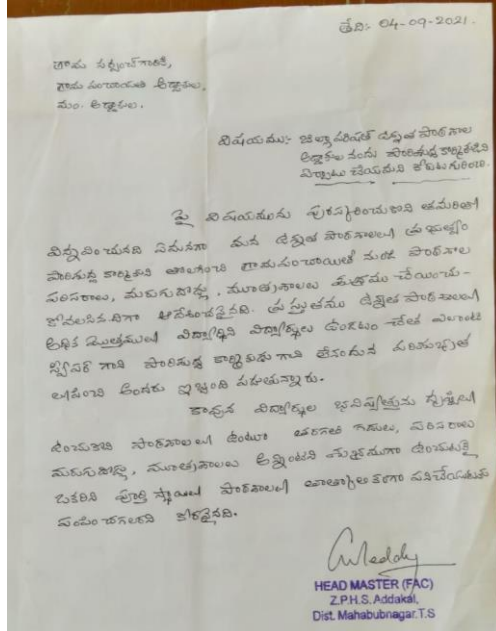 తేది:- 04-09-2021.
గ్రామ సర్పంచ్ గారికి,
గ్రామ పంచాయితి అడ్డాకుల,
మం. అడ్డాకుల.
విషయము:- జిల్లా పరిషత్ ఉన్నత పాఠశాల
అడ్డాకుల నందు పారిశుధ్య కార్మికుడిని
ఏర్పాటు చేయమని కోరుట గురించి.
పై విషయమును పురస్కరించుకొని తమరితో
విన్నవించునది ఏమనగా మన ఉన్నత పాఠశాలలు ప్రభుత్వం
పారిశుధ్య కార్మికుని తొలగించి గ్రామపంచాయితే నుండి పాఠశాల
పరిసరాలు, మరుగుదొడ్లు, మూత్రశాలలు శుభ్రము చేయించు-
కోవలసినదిగా ఆదేశించనైనది. ప్రస్తుతము ఉన్నత పాఠశాలలో
అధిక మొత్తములో విద్యార్థిని విద్యార్థులు ఉండటం చేత ఎలాంటి
స్వీపర్ గాని పారిశుధ్య కార్మికుడు గాని లేనందున పరిశుభ్రత
లోపించి అందరు ఇబ్బంది పడుతున్నారు.
కావున విద్యార్థుల భవిష్యత్తును దృష్టిలో
ఉంచుకొని పాఠశాలలో ఉంటూ తరగతి గదులు, పరిసరాలు
మరుగుదొడ్లు, మూత్రశాలలు అన్నింటిని శుభ్రముగా ఉంచుటకై
ఒకరిని పూర్తి స్థాయిలో పాఠశాలలో తాత్కాలికంగా పనిచేయుటకు
పంపించగలరని కోరనైనది.
HEAD MASTER (FAC)
Z.P.H.S. Addakal,
Dist. Mahabubnagar.T.S